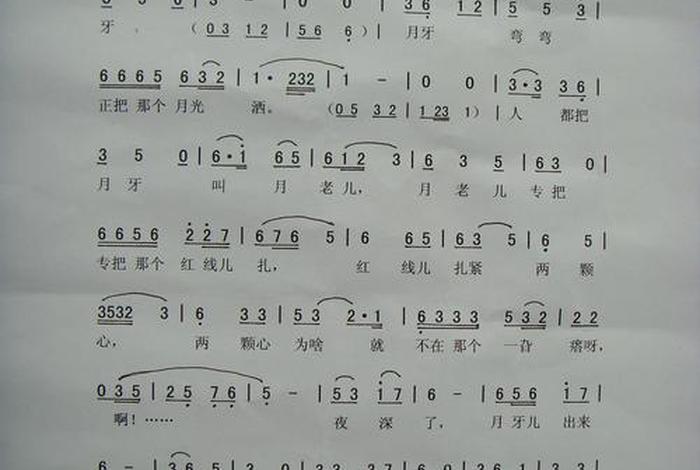 牙。 （0 3 1 2 | 5 6 6）| 月牙 弯弯
6 6 6 5 6 3 2 | 1· 232 | 1 - | 0 0 | 3·3 3 6 |
正把 那个 月光 洒。 （0 5 3 2 | 1 23 1）| 人 都把
3 5 0 | 6·1 6 5 | 6 1 2 3 | 6 3 5 | 6 3 0 |
月 牙 叫 月 老儿， 月 老儿 专把
6 6 5 6 2 2 7 | 6 7 6 5 | 6 6 5 | 6 3 5 | 6 5 |
专把 那个 红 线儿 扎， 红 线儿 扎紧 两 颗
3532 3 | 6 3 3 | 5 3 2·1 | 6 3 3 3 5 3 2 | 2 2
心， 两 颗心 为啥 就 不在 那个 一旮 瘩呀，
0 3 5 | 2 5 7 6 | 5 - | 5 3 1 7 | 6 - | 6 5 6 1 7 |
啊！…… 夜 深 了， 月 牙儿 出来